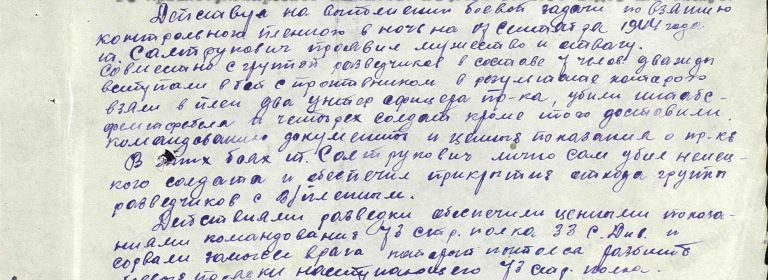 Действуя на выполнении боевой задачи по взятию
контрольного пленного в ночь на 17 сентября 1944 года
т. Салтрукович проявил мужество и отвагу.
Совместно с группой разведчиков в составе 7 челов. дважды
вступали в бой с противником в результате которого
взяли в плен два унтер офицера пр-ка, убили штабс-
фельтфебеля и четырех солдат кроме того доставили
командованию документы и ценные показания о пр-ке
В этих боях т. Салтрукович лично сам убил немец-
кого солдата и обеспечил прикрытие отхода группы
разведчиков с в/пленным.
Действиями разведки обеспечили ценными показа-
ниями командование 73 стр. полка 33 с. Див. и
сорвали замысел врага который пытолся разбить
боевые порядки наступающего 73 стр. полка.